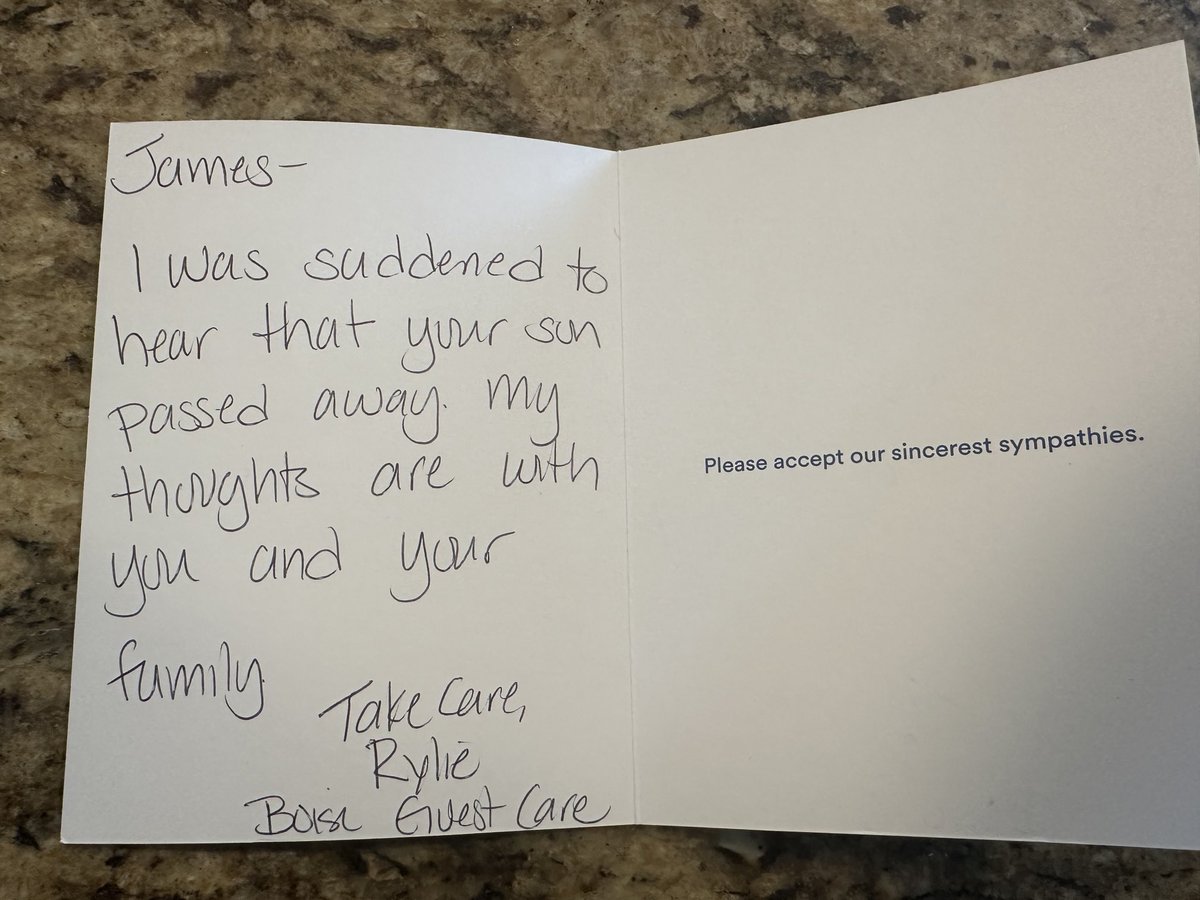 James-
I was saddened to
hear that your son
passed away. My
thoughts are with
you and your
family.
Take Care,
Rylie
Boise Guest Care
Please accept our sincerest sympathies.